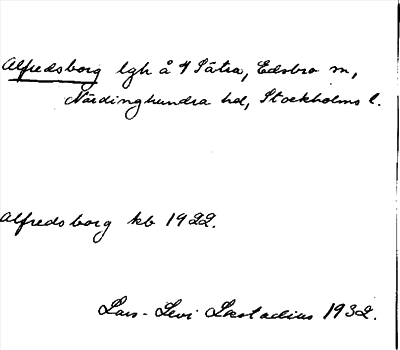 Alfredsborg lgh å 4 Sätra, Edsbro sn,
Närdinghundra hd, Stockholms l.
Alfredsborg kb 1922.
Lars-Levi Læstadius 1932.